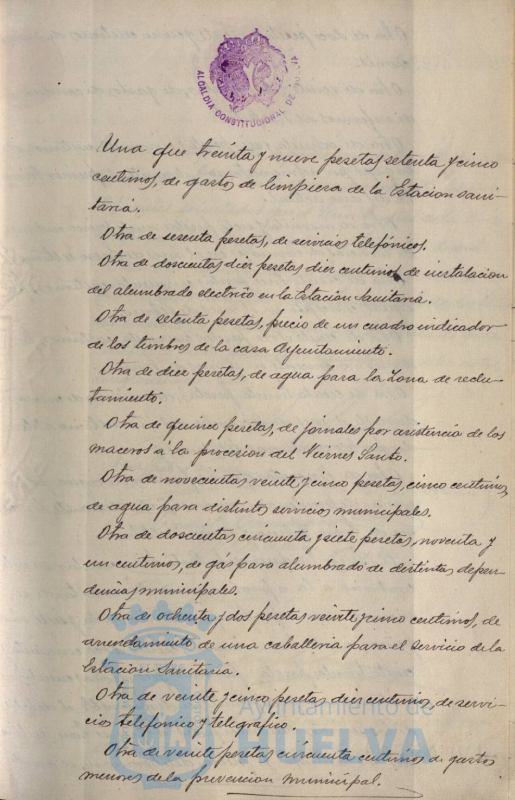 ALCALDIA CONSTITUCIONAL DE
Una que treinta y nueve pesetas setenta y cinco
centimos, de gasto de limpiesa de la Estacion sani-
taria.
Otra de sesenta pesetas, de servicios telefónicos.
Otra de doscientas diez pesetas diez centimos, de instalacion
del alumbrado electrico en la Estacion Sanitaria.
Otra de setenta pesetas, precio de un cuadro indicador
de los timbres de la casa Ayuntamiento.
Otra de diez pesetas, de agua para la Zona de reclu-
tamiento.
Otra de quince pesetas, de jornales por asistencia de los
maceros á la procesion del Viernes Santo.
Otra de novecientas veinte y cinco pesetas, cinco centimos,
de agua para distintos servicios municipales.
Otra de doscientas cincuenta y siete pesetas, noventa y
un centimos, de gás para alumbrado de distintas depen-
dencias municipales.
Otra de ochenta y dos pesetas veinte y cinco centimos, de
arrendamiento de una caballeria para el servicio de la
Estacion Sanitaria.
Otra de veinte y cinco pesetas diez centimos, de servi-
cios telefonico y telegrafico.
Otra de veinte pesetas cincuenta centimos de gastos
menores de la prevencion municipal.
Ayuntamiento de
HUELVA